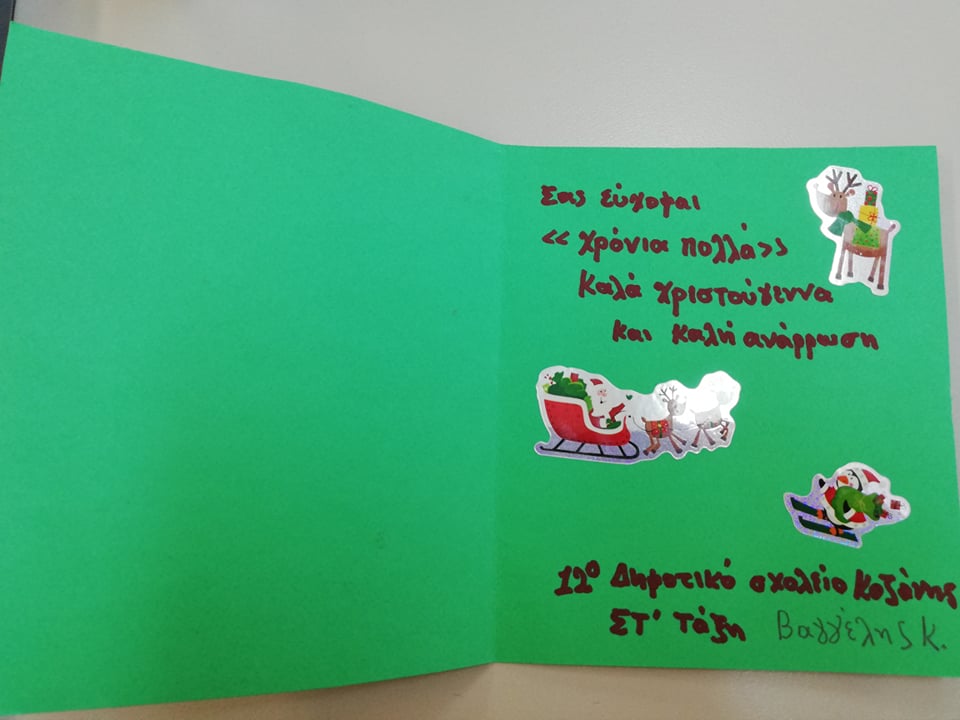 Σας εύχομαι
<< χρόνια πολλά>>
Καλά χριστούγεννα
και καλή ανάρρωση
12ο Δημοτικό σχολείο Κοζάνης
ΣΤ' Τάξη Βαγγέλης Κ.